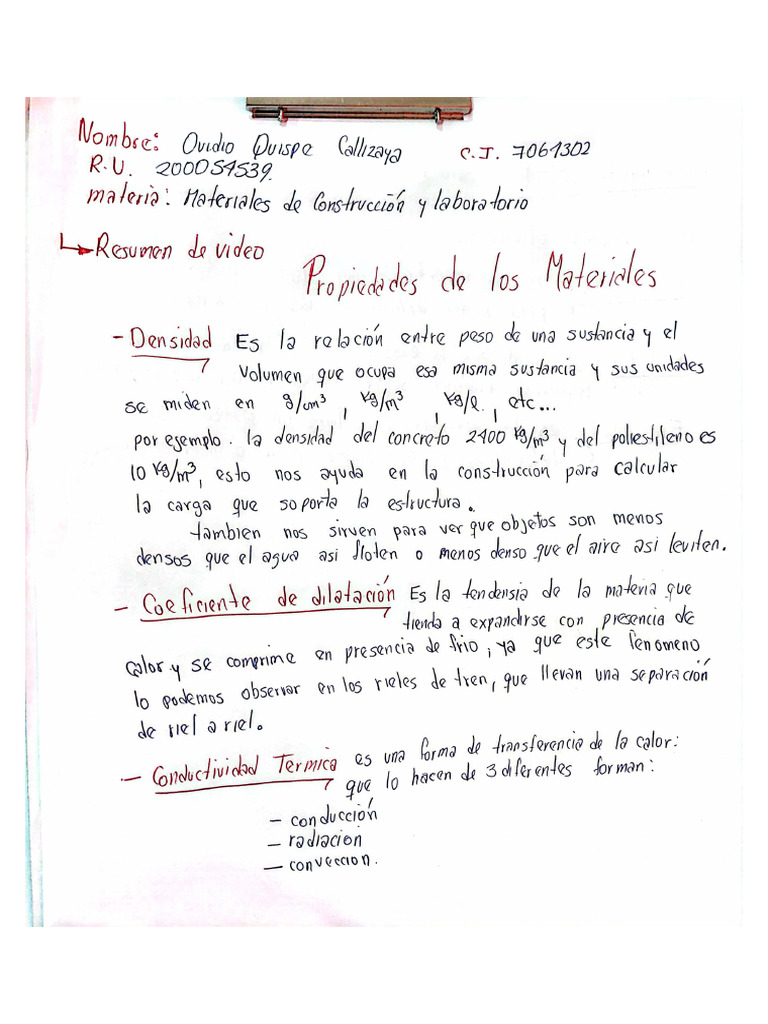 Nombre: Ovidio Quispe Callizaya C.I. 7061302
R.U. 200054539.
materia: Materiales de Construcción y laboratorio
Resumen de video
Propiedades de los Materiales
- Densidad Es la relación entre peso de una sustancia y el
volumen que ocupa esa misma sustancia y sus unidades
se miden en g/cm³, kg/m³, kg/l, etc...
por ejemplo. la densidad del concreto 2400 kg/m³ y del poliestileno es
10 kg/m³, esto nos ayuda en la construcción para calcular
la carga que soporta la estructura.
tambien nos sirven para ver que objetos son menos
densos que el agua asi floten o menos denso que el aire asi leviten.
- Coeficiente de dilatación Es la tendensia de la materia que
tienda a expandirse con presencia de
calor y se comprime en presencia de frio, ya que este fenomeno
lo podemos observar en los rieles de tren, que llevan una separación
de riel a riel.
- Conductividad Termica es una forma de transferencia de la calor:
que lo hacen de 3 diferentes forman:
- conducción
- radiacion
- conveccion.